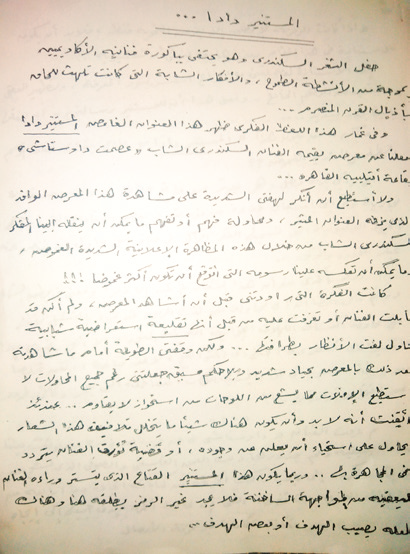 المستنير دادا ...
حفل الثغر السكندرى وهو يحتفى بباكورة فنانيه الأكاديميين
بموجة من الأنشطة الطموح ، والأفكار الشابة التى كانت تلهث للحاق
بأذيال القرن المنصرم ...
وفى غمار هذا اللغط الفكرى ظهر هذا العنوان الغامض المستنير دادا
معلنا عن معرض يقيمه الفنان السكندرى الشاب « عصمت داوستاشى »
بقاعة أتيليية القاهرة ...
ولا أستطيع أن أنكر لهفتى الشديدة على مشاهدة هذا المعرض الوافد
الذى يزفه العنوان المثير ، ومحاولة فهم أو تفهم ما يمكن أن ينقله إلينا الفكر
السكندرى الشاب من خلال هذه المظاهرة الإعلانية الشديدة الغموض ،
وما يمكن أن تعكسه علينا رسومه التى أتوقع أن تكون أكثر غموضا !!!
كانت الفكرة التى راودتنى قبل أن أشاهد المعرض ، ولم أكن قد
قابلت الفنان أو تعرفت عليه من قبل أنها تقليعة استعراضية شبابية
تحاول لفت الأنظار بطرافتها ... ولكن وقفتى الطويلة أمام ما شاهدته
بعد ذلك بالمعرض بحياد شديد وبلا حكم مسبق جعلتنى رغم جميع المحاولات لا
أستطيع الإفلات مما يشع من اللوحات من استحواز لا يقاوم .. عندئذ
أيقنت أنه لابد وأن يكون هناك شيئا ما يتخلل تلافيف هذا الشعار
يحاول على استحياء أن يعلن عن وجوده ، أو قضية تؤرق الفنان يتردد
فى المجاهرة بها .. وربما يكون هذا المستنير القناع الذى يتستر وراءه الفنان
ليعفيه من المواجهة الساخنة فلا يجد غير الرمز يطلقه هنا وهناك
لعله يصيب الهدف أو بعض الهدف ..